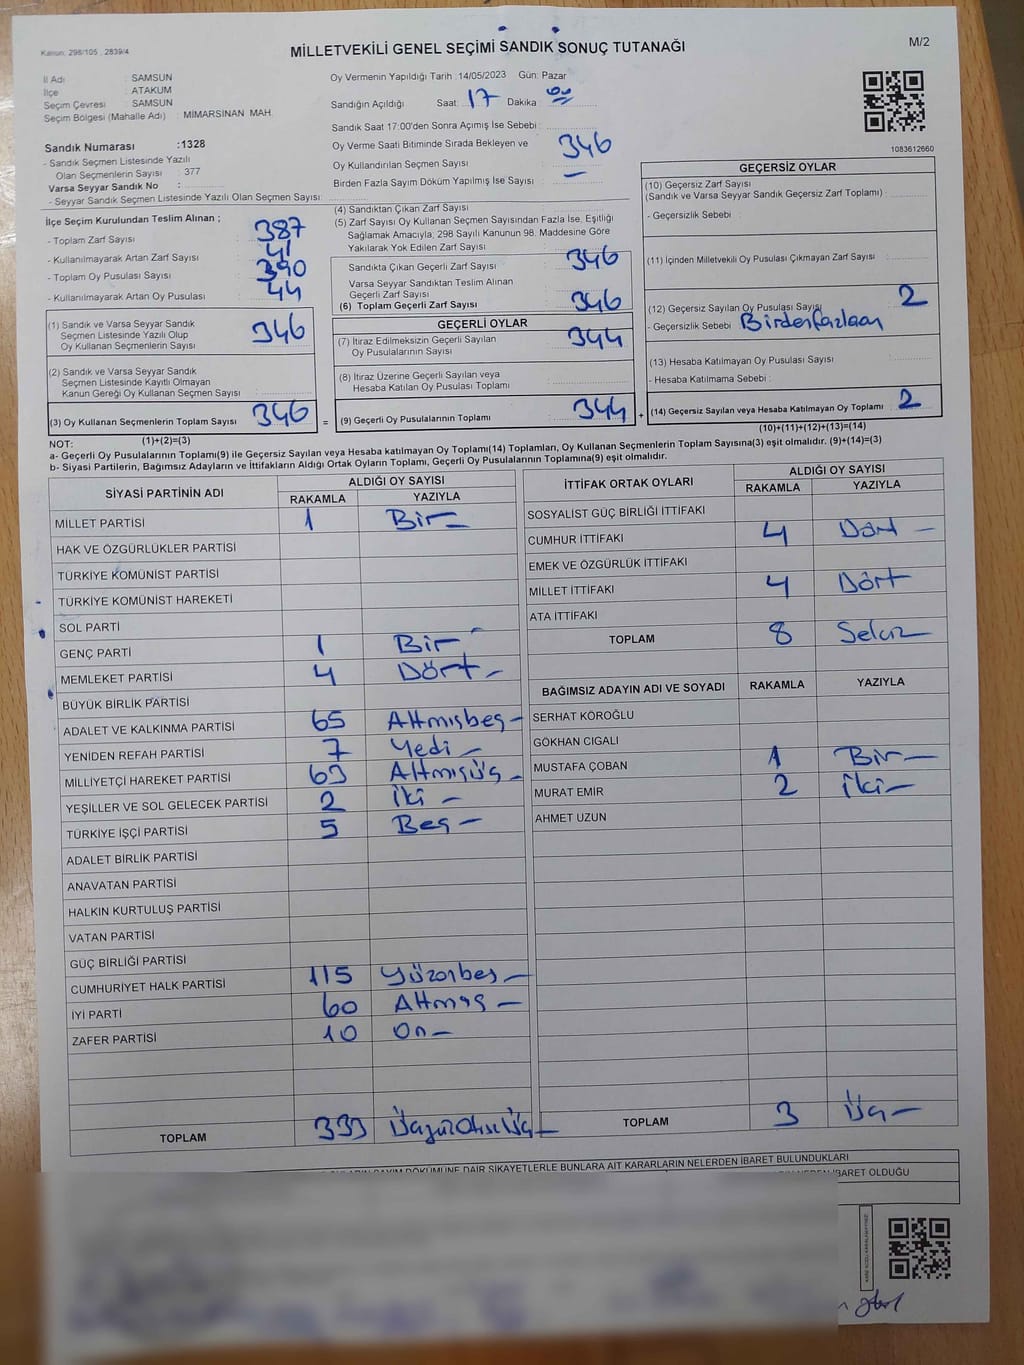 Kanun: 298/105 , 2839/4
MİLLETVEKİLİ GENEL SEÇİMİ SANDIK SONUÇ TUTANAĞI
M/2
İl Adı : SAMSUN
İlçe : ATAKUM
Seçim Çevresi : SAMSUN
Seçim Bölgesi (Mahalle Adı) : MİMARSİNAN MAH.
Sandık Numarası :1328
- Sandık Seçmen Listesinde Yazılı
Olan Seçmenlerin Sayısı : 377
Varsa Seyyar Sandık No :
- Seyyar Sandık Seçmen Listesinde Yazılı Olan Seçmen Sayısı:
Oy Vermenin Yapıldığı Tarih :14/05/2023 Gün: Pazar
Sandığın Açıldığı Saat: 17 Dakika : 00
Sandık Saat 17:00'den Sonra Açımış İse Sebebi :
Oy Verme Saati Bitiminde Sırada Bekleyen ve
Oy Kullandırılan Seçmen Sayısı : 346
Birden Fazla Sayım Döküm Yapılmış İse Sayısı : —
1083612660
İlçe Seçim Kurulundan Teslim Alınan ;
- Toplam Zarf Sayısı : 387
- Kullanılmayarak Artan Zarf Sayısı : 41
- Toplam Oy Pusulası Sayısı : 390
- Kullanılmayarak Artan Oy Pusulası : 44
(1) Sandık ve Varsa Seyyar Sandık
Seçmen Listesinde Yazılı Olup
Oy Kullanan Seçmenlerin Sayısı : 346
(2) Sandık ve Varsa Seyyar Sandık
Seçmen Listesinde Kayıtlı Olmayan
Kanun Gereği Oy Kullanan Seçmen Sayısı :
(3) Oy Kullanan Seçmenlerin Toplam Sayısı : 346
(1)+(2)=(3)
(4) Sandıktan Çıkan Zarf Sayısı :
(5) Zarf Sayısı Oy Kullanan Seçmen Sayısından Fazla İse, Eşitliği
Sağlamak Amacıyla; 298 Sayılı Kanunun 98. Maddesine Göre
Yakılarak Yok Edilen Zarf Sayısı :
Sandıkta Çıkan Geçerli Zarf Sayısı : 346
Varsa Seyyar Sandıktan Teslim Alınan
Geçerli Zarf Sayısı :
(6) Toplam Geçerli Zarf Sayısı : 346
GEÇERLİ OYLAR
(7) İtiraz Edilmeksizin Geçerli Sayılan
Oy Pusulalarının Sayısı : 344
(8) İtiraz Üzerine Geçerli Sayılan veya
Hesaba Katılan Oy Pusulası Toplamı :
= (9) Geçerli Oy Pusulalarının Toplamı : 344
GEÇERSİZ OYLAR
(10) Geçersiz Zarf Sayısı
(Sandık ve Varsa Seyyar Sandık Geçersiz Zarf Toplamı) :
- Geçersizlik Sebebi :
(11) İçinden Milletvekili Oy Pusulası Çıkmayan Zarf Sayısı :
(12) Geçersiz Sayılan Oy Pusulası Sayısı : 2
- Geçersizlik Sebebi :
(13) Hesaba Katılmayan Oy Pusulası Sayısı :
- Hesaba Katılmama Sebebi :
+ (14) Geçersiz Sayılan veya Hesaba Katılmayan Oy Toplamı : 2
(10)+(11)+(12)+(13)=(14)
NOT:
a- Geçerli Oy Pusulalarının Toplamı(9) ile Geçersiz Sayılan veya Hesaba katılmayan Oy Toplamı(14) Toplamları, Oy Kullanan Seçmenlerin Toplam Sayısına(3) eşit olmalıdır. (9)+(14)=(3)
b- Siyasi Partilerin, Bağımsız Adayların ve İttifakların Aldığı Ortak Oyların Toplamı, Geçerli Oy Pusulalarının Toplamına(9) eşit olmalıdır.
SİYASİ PARTİNİN ADI ALDIĞI OY SAYISI
RAKAMLA YAZIYLA
MİLLET PARTİSİ 1 Bir —
HAK VE ÖZGÜRLÜKLER PARTİSİ
TÜRKİYE KOMÜNİST PARTİSİ
TÜRKİYE KOMÜNİST HAREKETİ
SOL PARTİ
GENÇ PARTİ 1 Bir —
MEMLEKET PARTİSİ 4 Dört —
BÜYÜK BİRLİK PARTİSİ
ADALET VE KALKINMA PARTİSİ 65 Altmışbeş —
YENİDEN REFAH PARTİSİ 7 Yedi —
MİLLİYETÇİ HAREKET PARTİSİ 63 Altmışüç —
YEŞİLLER VE SOL GELECEK PARTİSİ 2 İki —
TÜRKİYE İŞÇİ PARTİSİ 5 Beş —
ADALET BİRLİK PARTİSİ
ANAVATAN PARTİSİ
HALKIN KURTULUŞ PARTİSİ
VATAN PARTİSİ
GÜÇ BİRLİĞİ PARTİSİ
CUMHURİYET HALK PARTİSİ 115 Yüzonbeş —
İYİ PARTİ 60 Altmış —
ZAFER PARTİSİ 10 On —
TOPLAM 333
İTTİFAK ORTAK OYLARI ALDIĞI OY SAYISI
RAKAMLA YAZIYLA
SOSYALİST GÜÇ BİRLİĞİ İTTİFAKI
CUMHUR İTTİFAKI 4 Dört —
EMEK VE ÖZGÜRLÜK İTTİFAKI
MİLLET İTTİFAKI 4 Dört
ATA İTTİFAKI
TOPLAM 8 Sekiz
BAĞIMSIZ ADAYIN ADI VE SOYADI RAKAMLA YAZIYLA
SERHAT KÖROĞLU
GÖKHAN CIGALI
MUSTAFA ÇOBAN 1 Bir —
MURAT EMİR 2 İki —
AHMET UZUN
TOPLAM 3 Üç —
SAYIM DÖKÜMÜNE DAİR ŞİKAYETLERLE BUNLARA AİT KARARLARIN NELERDEN İBARET BULUNDUKLARI
İBARET OLDUĞU